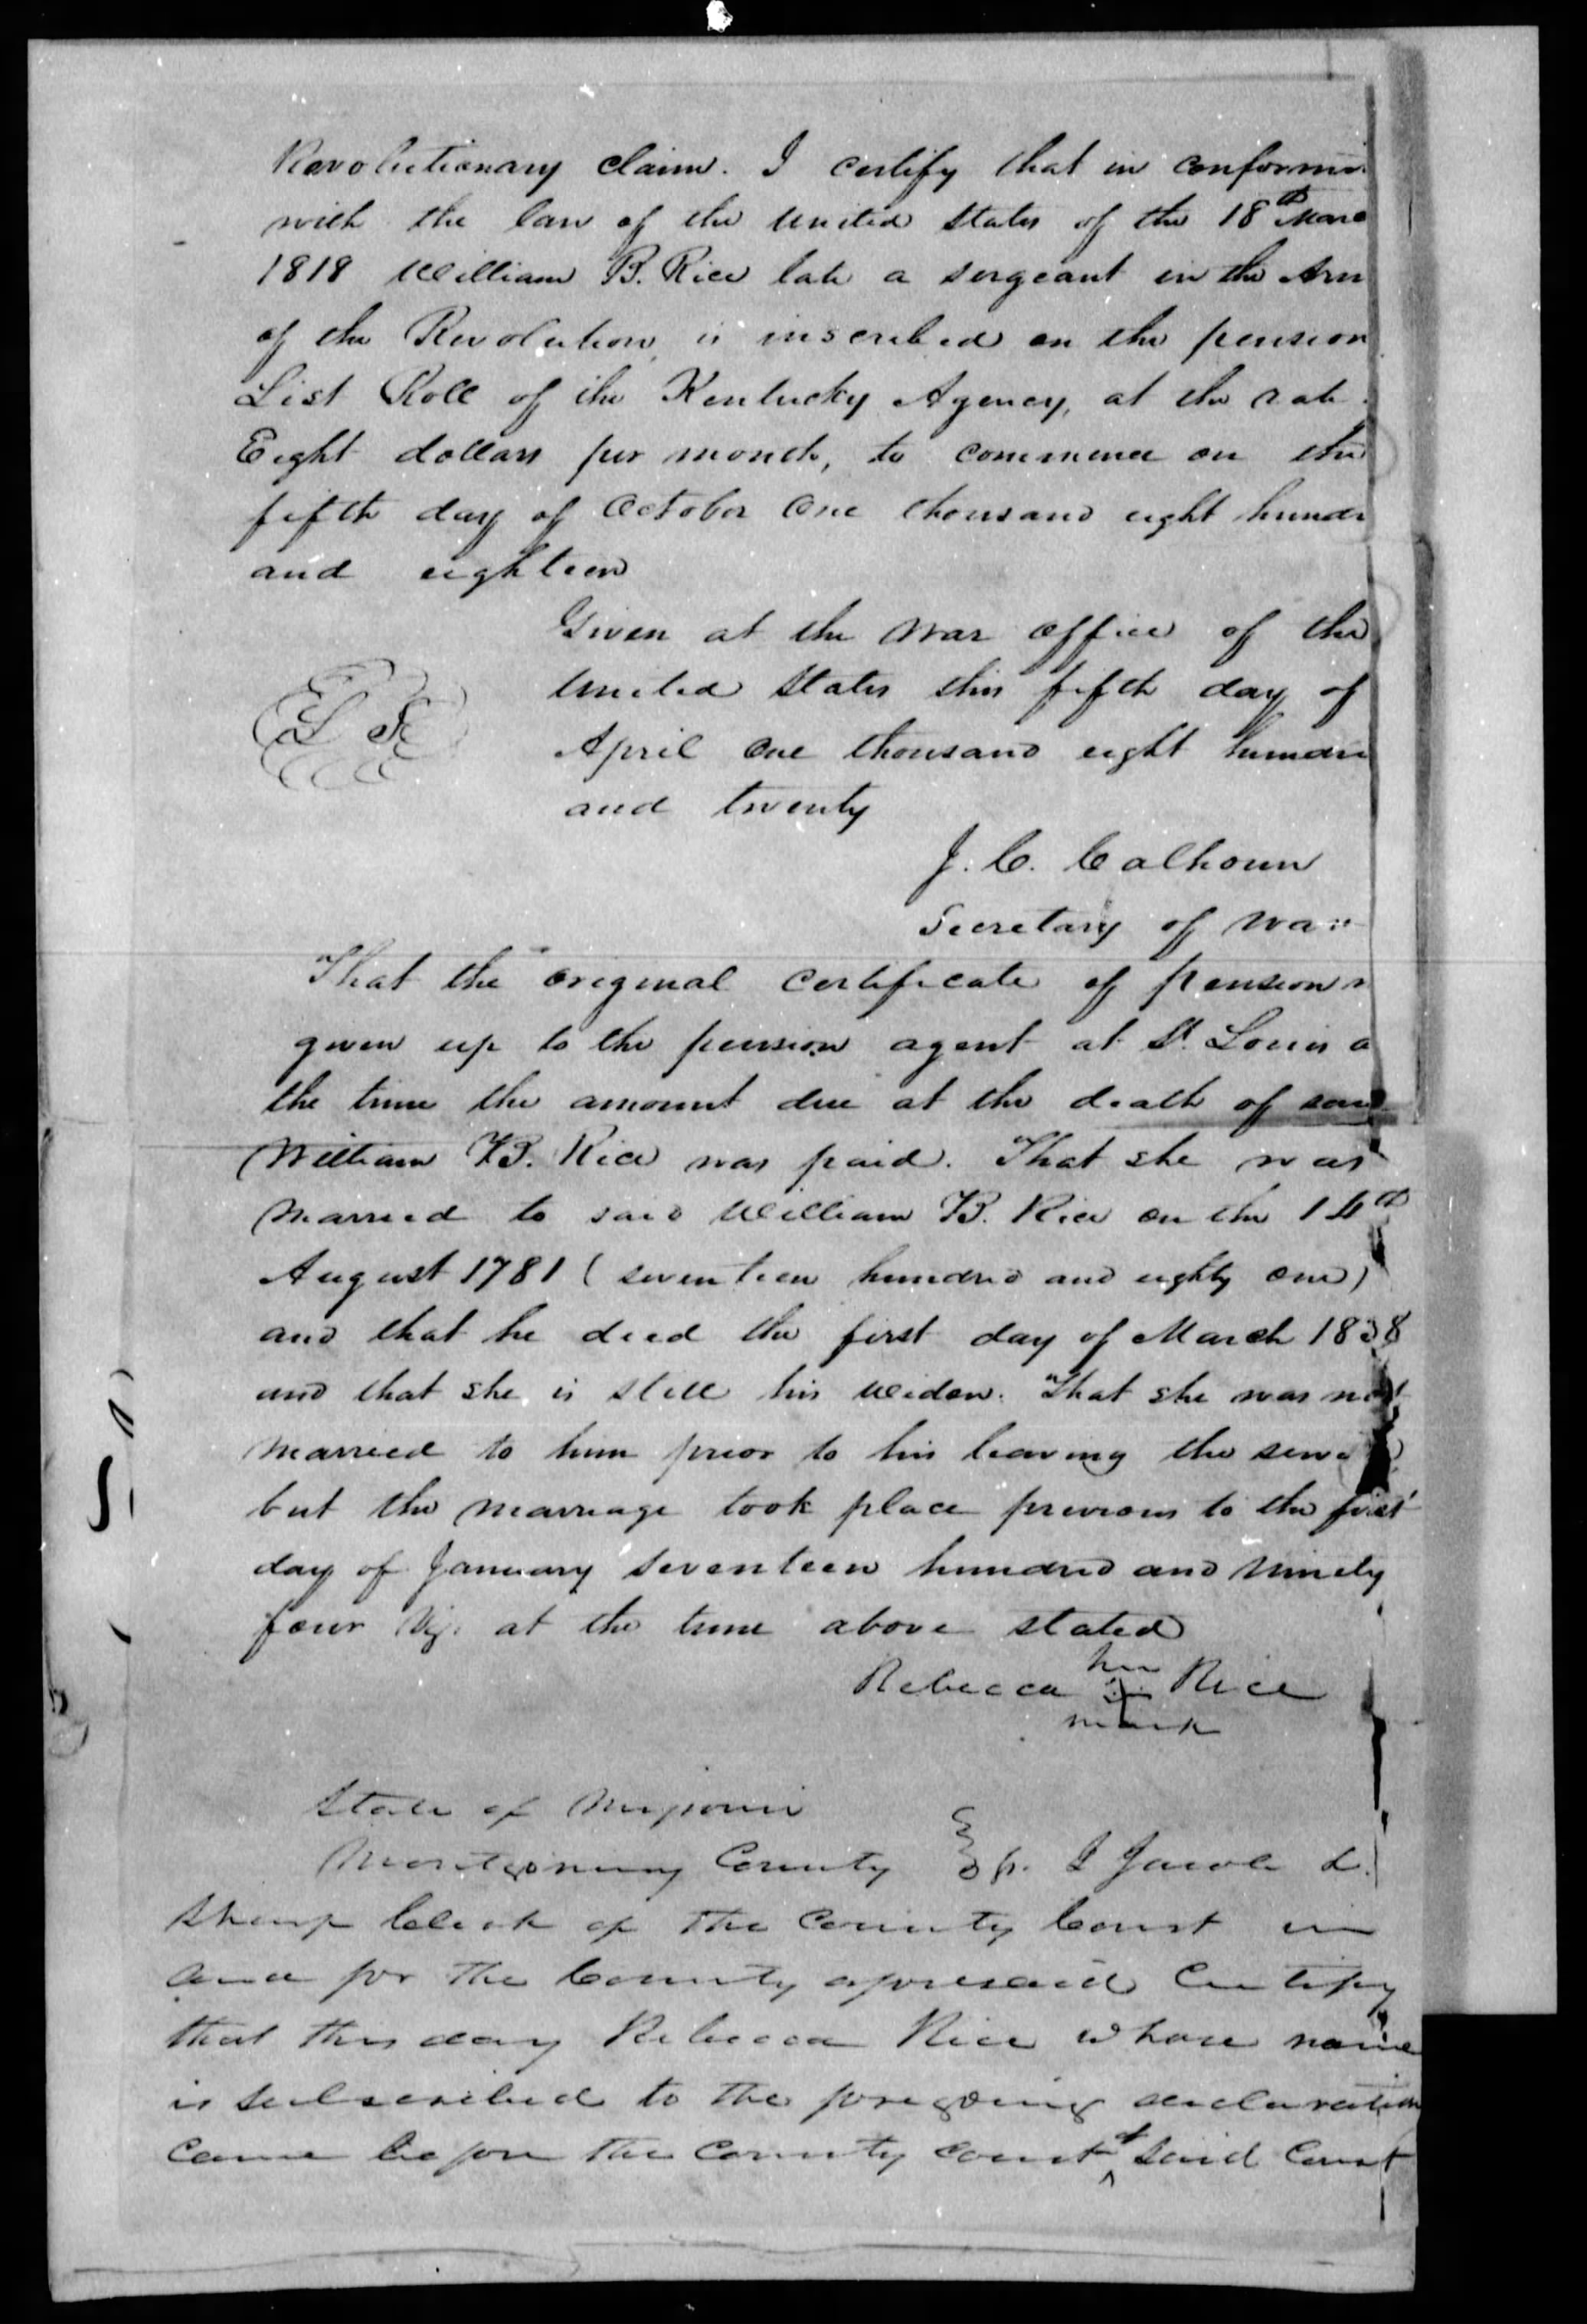 Revolutionary claim. I certify that in conformi
with the law of the United States of the 18th Marc
1818 William B. Rice late a sergeant in the Arm
of the Revolution, is inscribed on the pension
List Roll of the Kentucky Agency, at the rate
Eight dollars per month, to commence on the
fifth day of October One thousand eight hundr
and eighteen
Given at the War Office of the
United States this fifth day of
L S
April One thousand eight hundre
and twenty
J. C. Calhoun
Secretary of War
That the original certificate of pension
given up to the pension agent at St. Louis a
the time the amount due at the death of said
William B. Rice was paid. That she was
married to said William B. Rice on the
August 1781 (seventeen hundred and eighty one)
and that he died the first day of March 1838
and that she is still his widow. That she was not
married to him prior to his leaving the servi
but the marriage took place previous to the first
day of January seventeen hundred and ninety
four Viz. at the time above stated
her
Rebecca Rice
mark
State of Missouri
Montgomery County I Jacob L.
Sharp Clerk of the County Court in
and for the County aforesaid Certify
that this day Rebecca Rice whose name
is subscribed to the foregoing declaration
came before the County Court of said Court